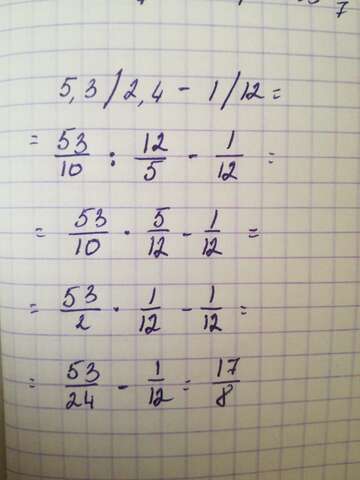 5,3/2,4 - 1/12 =
= 53/10 : 12/5 - 1/12 =
= 53/10 · 5/12 - 1/12 =
= 53/2 · 1/12 - 1/12 =
= 53/24 - 1/12 = 17/8